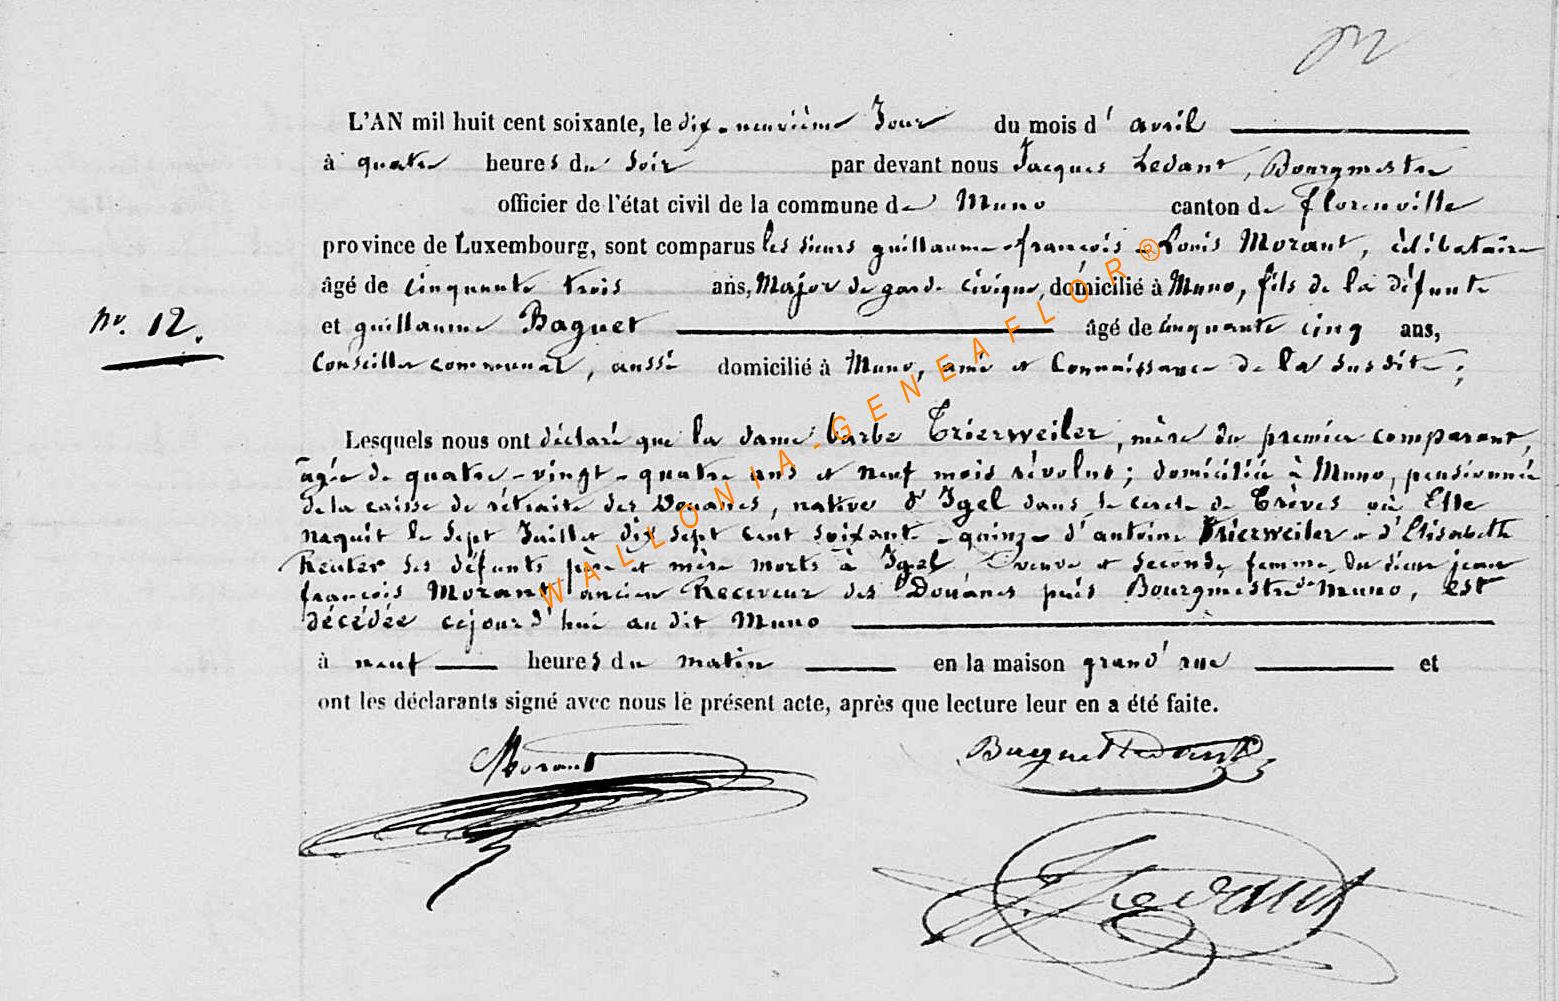 L'AN mil huit cent soixante, le dix-neuvième Jour du mois d'avril
à quatre heures du soir par devant nous Jacques Ledant, Bourgmestre
officier de l'état civil de la commune de Muno canton de Florenville
province de Luxembourg, sont comparus les sieurs guillaume-françois-Louis Morant, célibataire
âgé de cinquante trois ans, Major de garde civique, domicilié à Muno, fils de la défunte
n°. 12. et guillaume Baquet âgé de cinquante cinq ans,
Conseiller communal, aussi domicilié à Muno, ami et Connaissance de la susdite;
Lesquels nous ont déclaré que la dame barbe Trierweiler, mère du premier comparant,
âgée de quatre-vingt-quatre ans et neuf mois révolus; domiciliée à Muno, pensionnée
de la caisse de retraite des Douanes, native d'Igel dans le cercle de Trèves où Elle
naquit le sept Juillet dix sept cent soixante-quinze d'antoine Trierweiler et d'Elisabeth
Reuter ses défunts père et mère morts à Igel veuve et seconde femme du sieur jean
françois Morant ancien Receveur des Douanes puis Bourgmestre de Muno, est
décédée cejourd'hui au dit Muno
à neuf heures du matin en la maison grand'rue et
ont les déclarants signé avec nous le présent acte, après que lecture leur en a été faite.
Morant Baquet
J. Ledant
WALLONIA-GENEAFLOR®